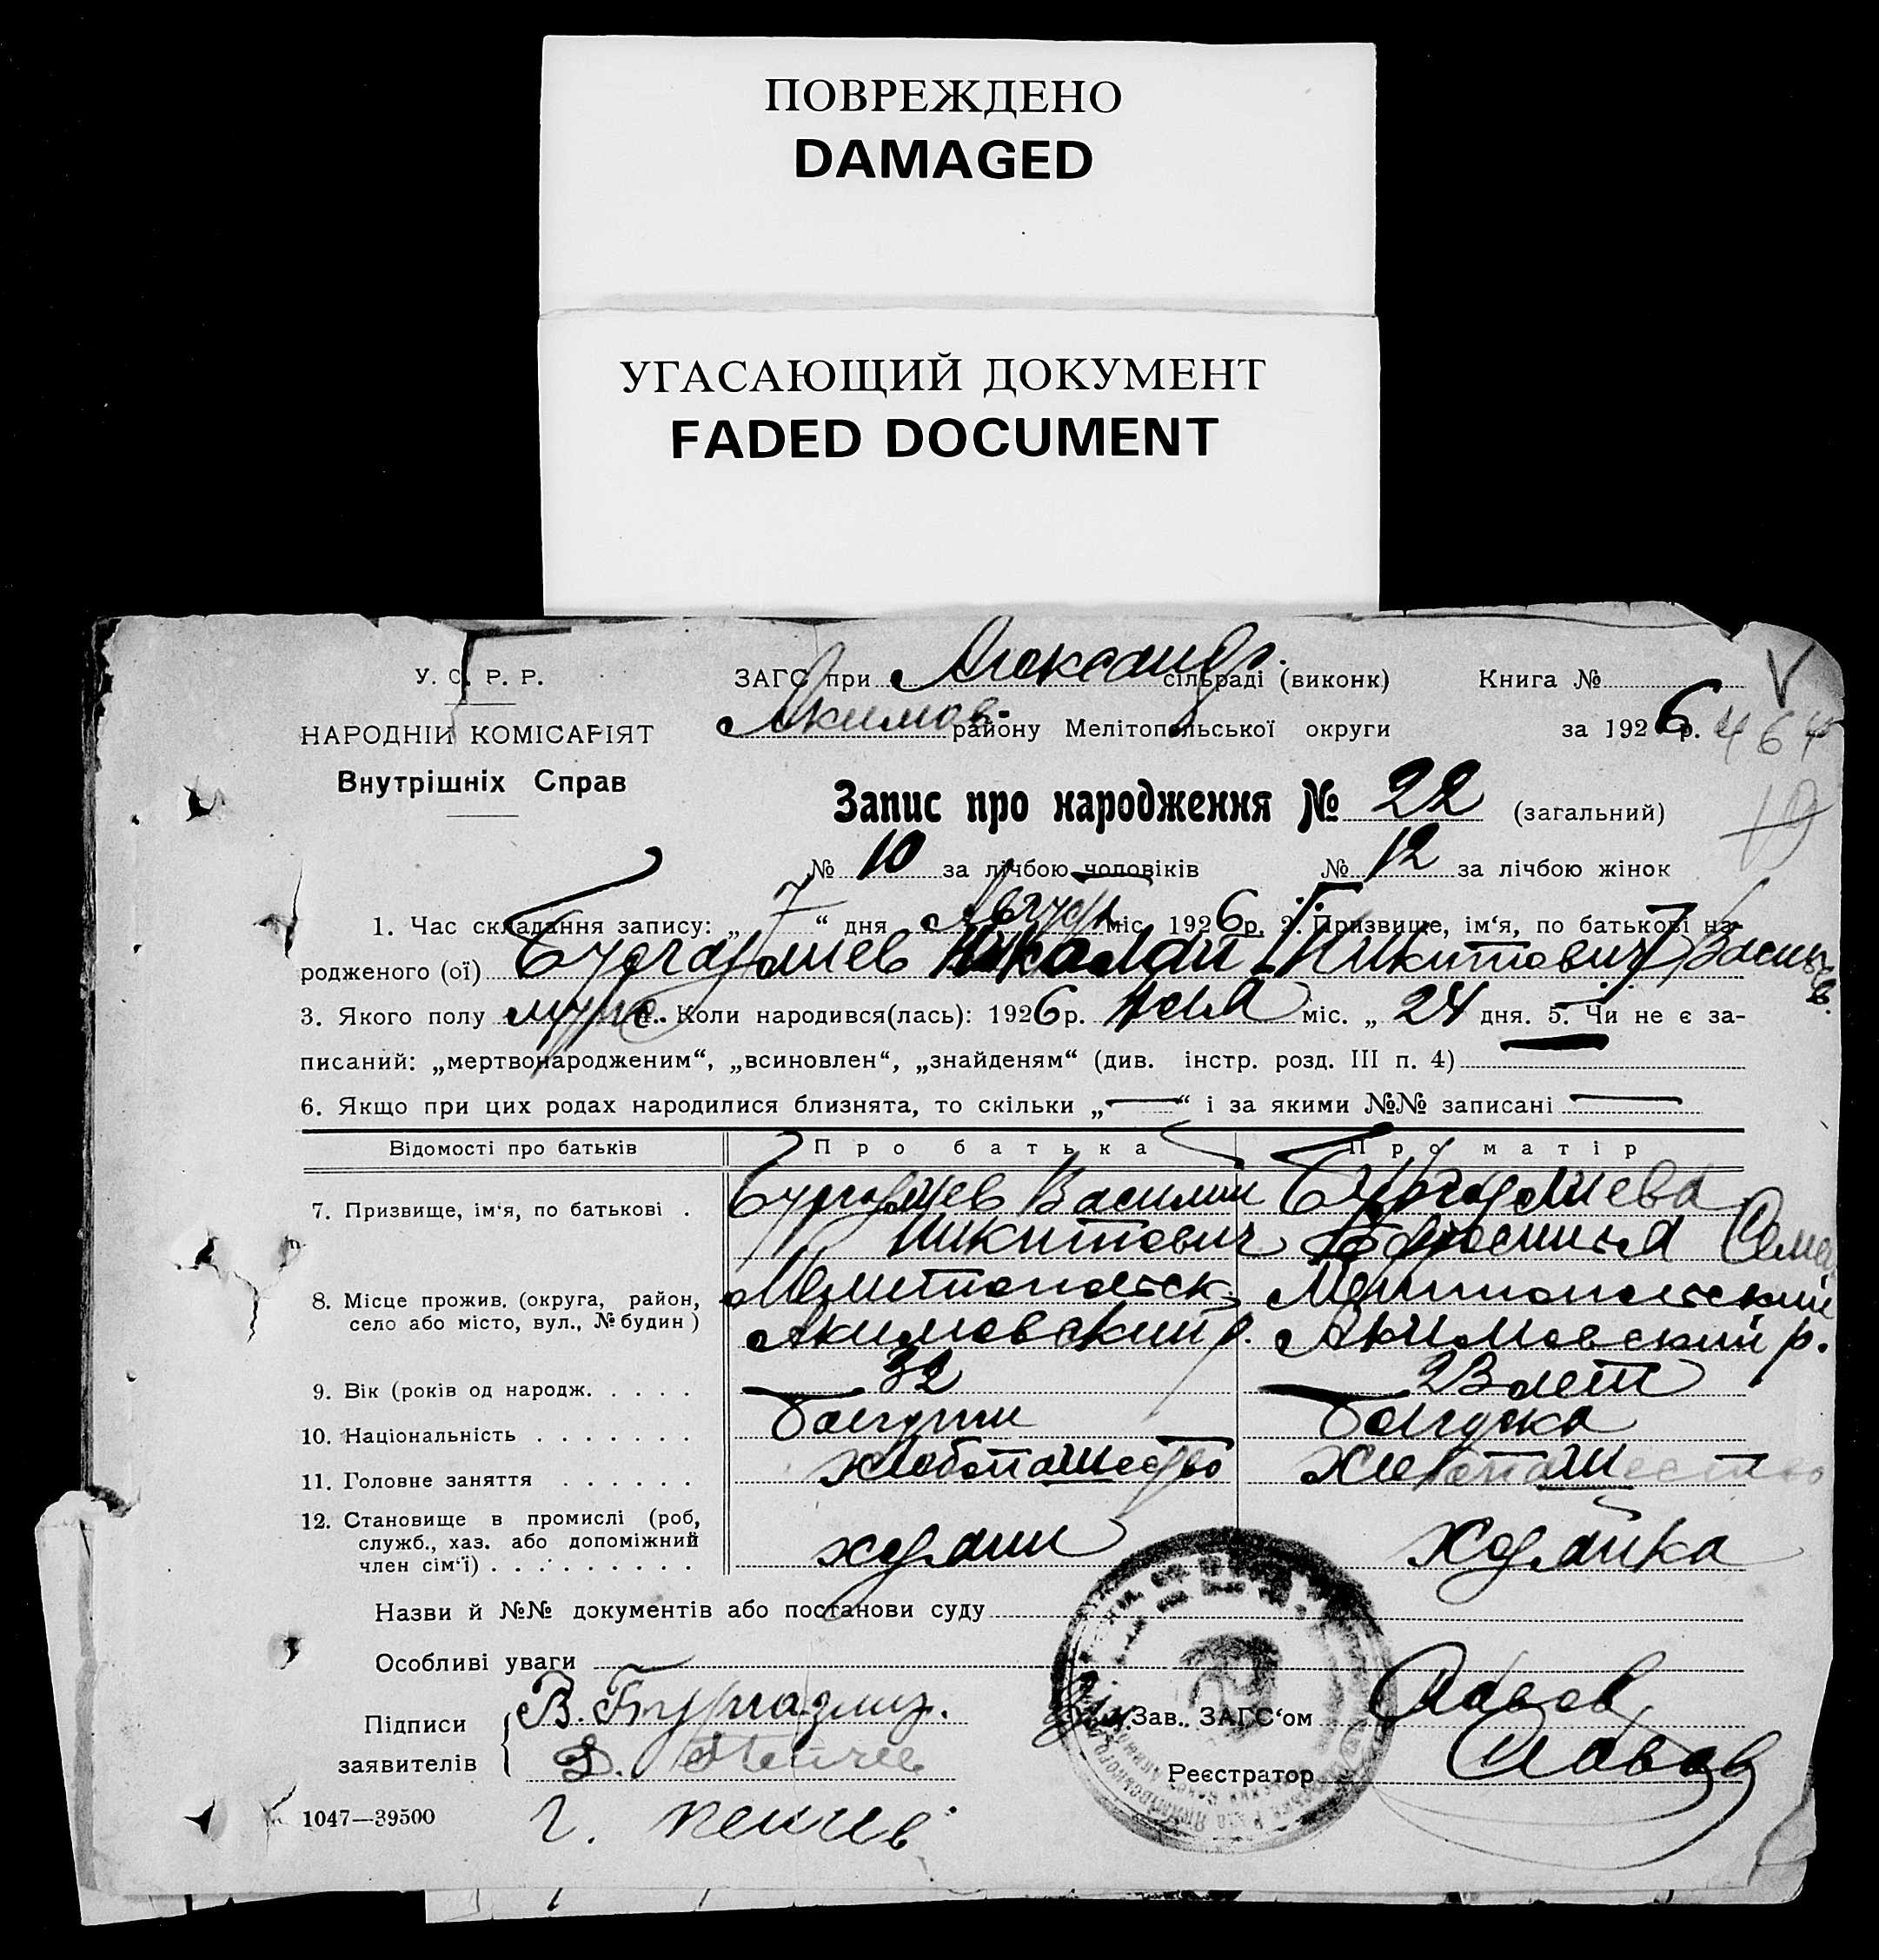 ПОВРЕЖДЕНО
DAMAGED
УГАСАЮЩИЙ ДОКУМЕНТ
FADED DOCUMENT
У. С. Р. Р.
НАРОДНІЙ КОМІСАРІЯТ
Внутрішніх Справ
ЗАГС при Александр. сільраді (виконк)
Акимов- району Мелітопольської округи
Книга №
за 1926 р. 464
19
Запис про народження № 22 (загальний)
№ 10 за лічбою чоловіків № 12 за лічбою жінок
1. Час складання запису: „ 7 “ дня Август міс. 1926 р. 2. Призвище, ім‘я, по батькові на-
родженого (ої) Бургазлиев Николай [Никитович] Васильев.
3. Якого полу муж. 4. Коли народився(лась): 1926 р. міс. „ 24 дня. 5. Чи не є за-
писаний: „мертвонародженим“, „всиновлен“, „знайденям“ (див. інстр. розд. III п. 4)
6. Якщо при цих родах народилися близнята, то скільки „ — “ і за якими №№ записані —
Відомості про батьків Про батька Про матір
7. Призвище, ім‘я, по батькові . Бургазлиев Василий Бургазлиева
Никитович Ефросинья Семе
8. Місце прожив. (округа, район, Мелитопольск. Мелитопольский
село або місто, вул., № будин) Акимовский р. Акимовский р.
9. Вік (років од народж. . . . . 32 23 лет
10. Національність . . . . . . . болгарин болгарка
11. Головне заняття . . . . . . хлебопашество хлебопашество
12. Становище в промислі (роб,
служб., хаз. або допоміжний
член сім‘ї) . . . . . . . . . хозяин хозяйка
Назви й №№ документів або постанови суду
Особливі уваги
Підписи В. Бургазлиз.
заявителів Д. Пейчев
Зав. ЗАГС‘ом
Реєстратор
1047—39500 Г. Пейчев